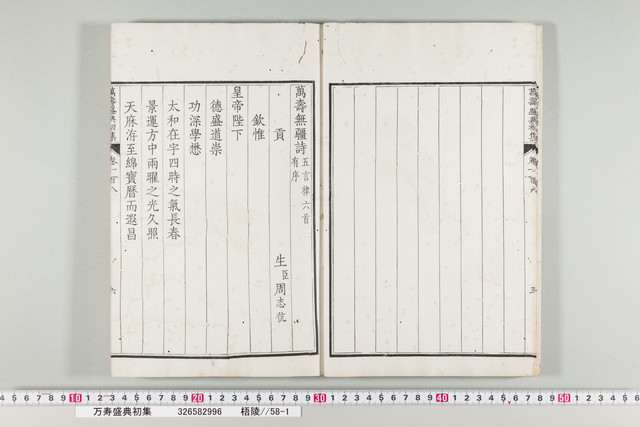 萬壽盛典初集
萬壽無疆詩五言律六首有序
貢生臣周志伉
欽惟
皇帝陛下
德盛道崇
功深學懋
太和在宇四時之氣長春
景運方中兩曜之光久照
天庥洊至綿寶曆而遐昌
萬壽盛典初集 卷一百八 六
万寿盛典初集 326582996 梧陵//58-1